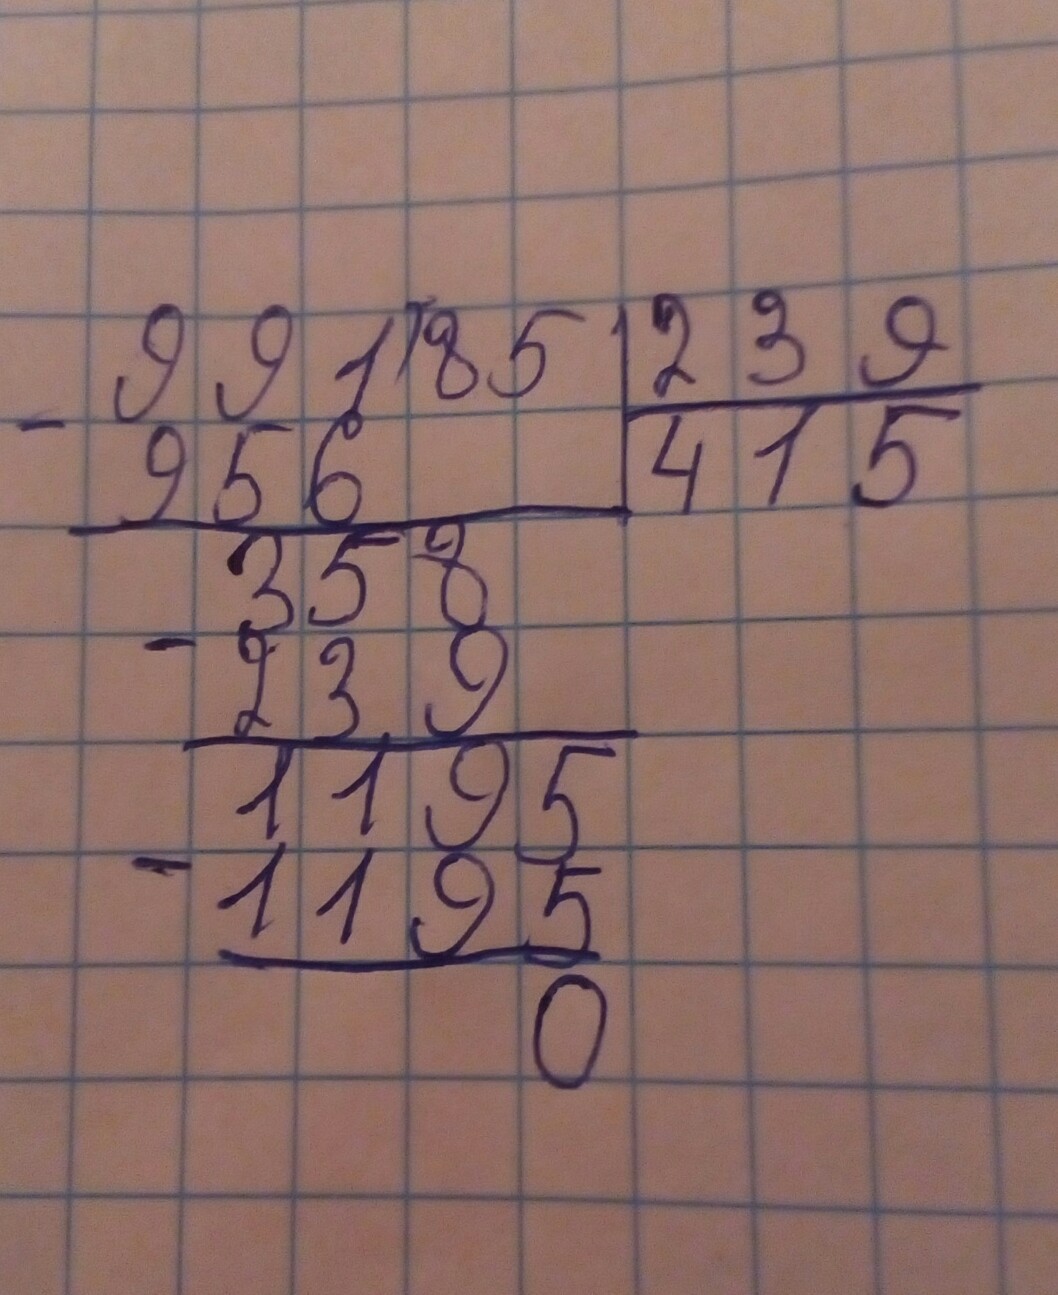 99185 239
- 956 415
358
- 239
1195
- 1195
0